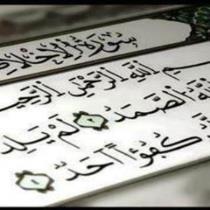 سُورَةُ الإِخْلَاصِ
بِسْمِ اللَّهِ الرَّحْمَنِ الرَّحِيمِ
اللَّهُ الصَّمَدُ لَمْ يَلِدْ
كُفُوًا أَحَدٌ